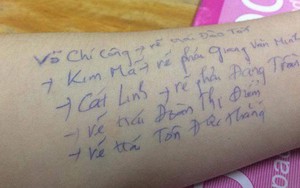 Võ Chí Công → rẽ trái Đào Tấn
→ Kim Mã → rẽ phải Giang Văn Minh
→ Cát Linh → rẽ phải Đặng Trần
→ rẽ trái Đoàn Thị Điểm
→ rẽ trái Tôn Đức Thắng